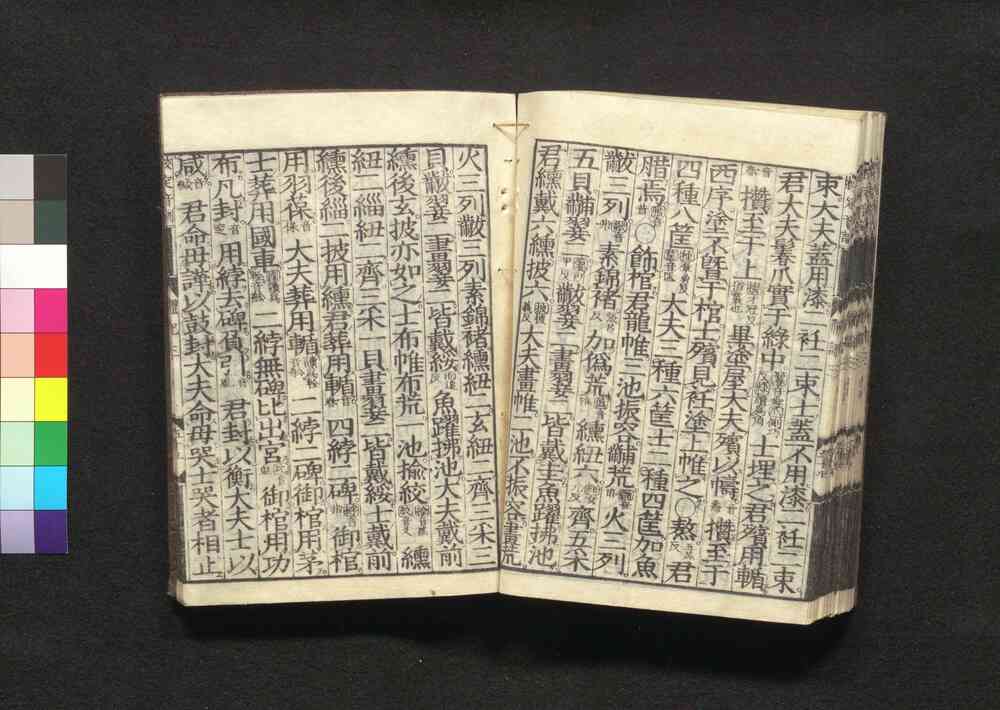 束大夫蓋用漆二衽二束士蓋不用漆二衽二束
君大夫鬊爪實于綠中士埋之君殯用輴
欑至于上畢塗屋大夫殯以幬欑至于
西序塗不曁于棺士殯見衽塗上帷之〇熬君
四種八筐大夫三種六筐士二種四筐加魚
腊焉〇飾棺君龍帷三池振容黼荒火三列
黻三列素錦褚加僞荒纁紐六齊五采
五貝黼翣二黻翣二畫翣二皆戴圭魚躍拂池
君纁戴六纁披六大夫畫帷二池不振容畫荒
火三列黻三列素錦褚纁紐二玄紐二齊三采三
貝黻翣二畫翣二皆戴綏魚躍拂池大夫戴前
纁後玄披亦如之士布帷布荒一池揄絞纁
紐二緇紐二齊三采一貝畫翣二皆戴綏士戴前
纁後緇二披用纁君葬用輴四綍二碑御棺
用羽葆大夫葬用輴二綍二碑御棺用茅
士葬用國車二綍無碑比出宮御棺用功
布凡封用綍去碑負引君封以衡大夫士以
咸君命毋譁以鼓封大夫命毋哭士哭者相止